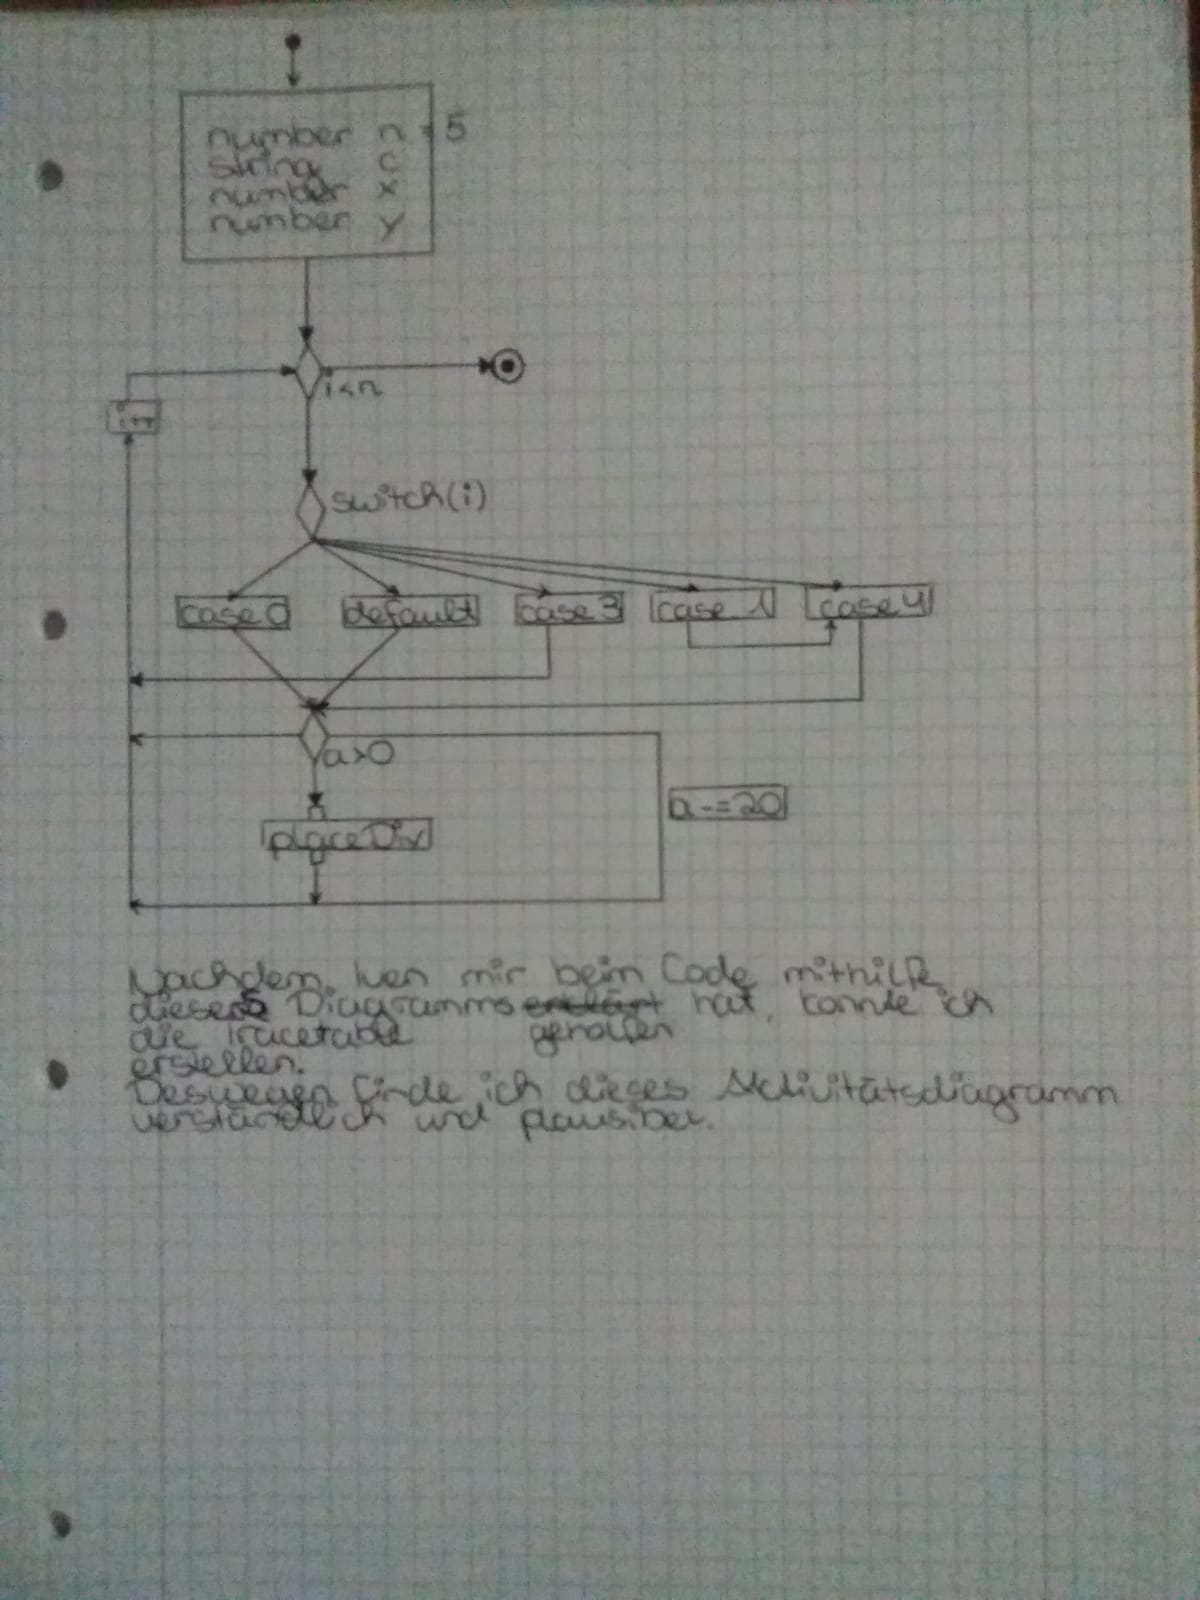 number n = 5
string c
number x
number y
i<n
i++
switch(i)
case 0 default case 3 case 1 case 4
a>0
a-=20
placeDiv
Nachdem mir beim Code mithilfe
dieses Diagramms erklärt hat, konnte ich
die Tracetable geholfen
erstellen.
Deswegen finde ich dieses Aktivitätsdiagramm
verständlich und plausibel.